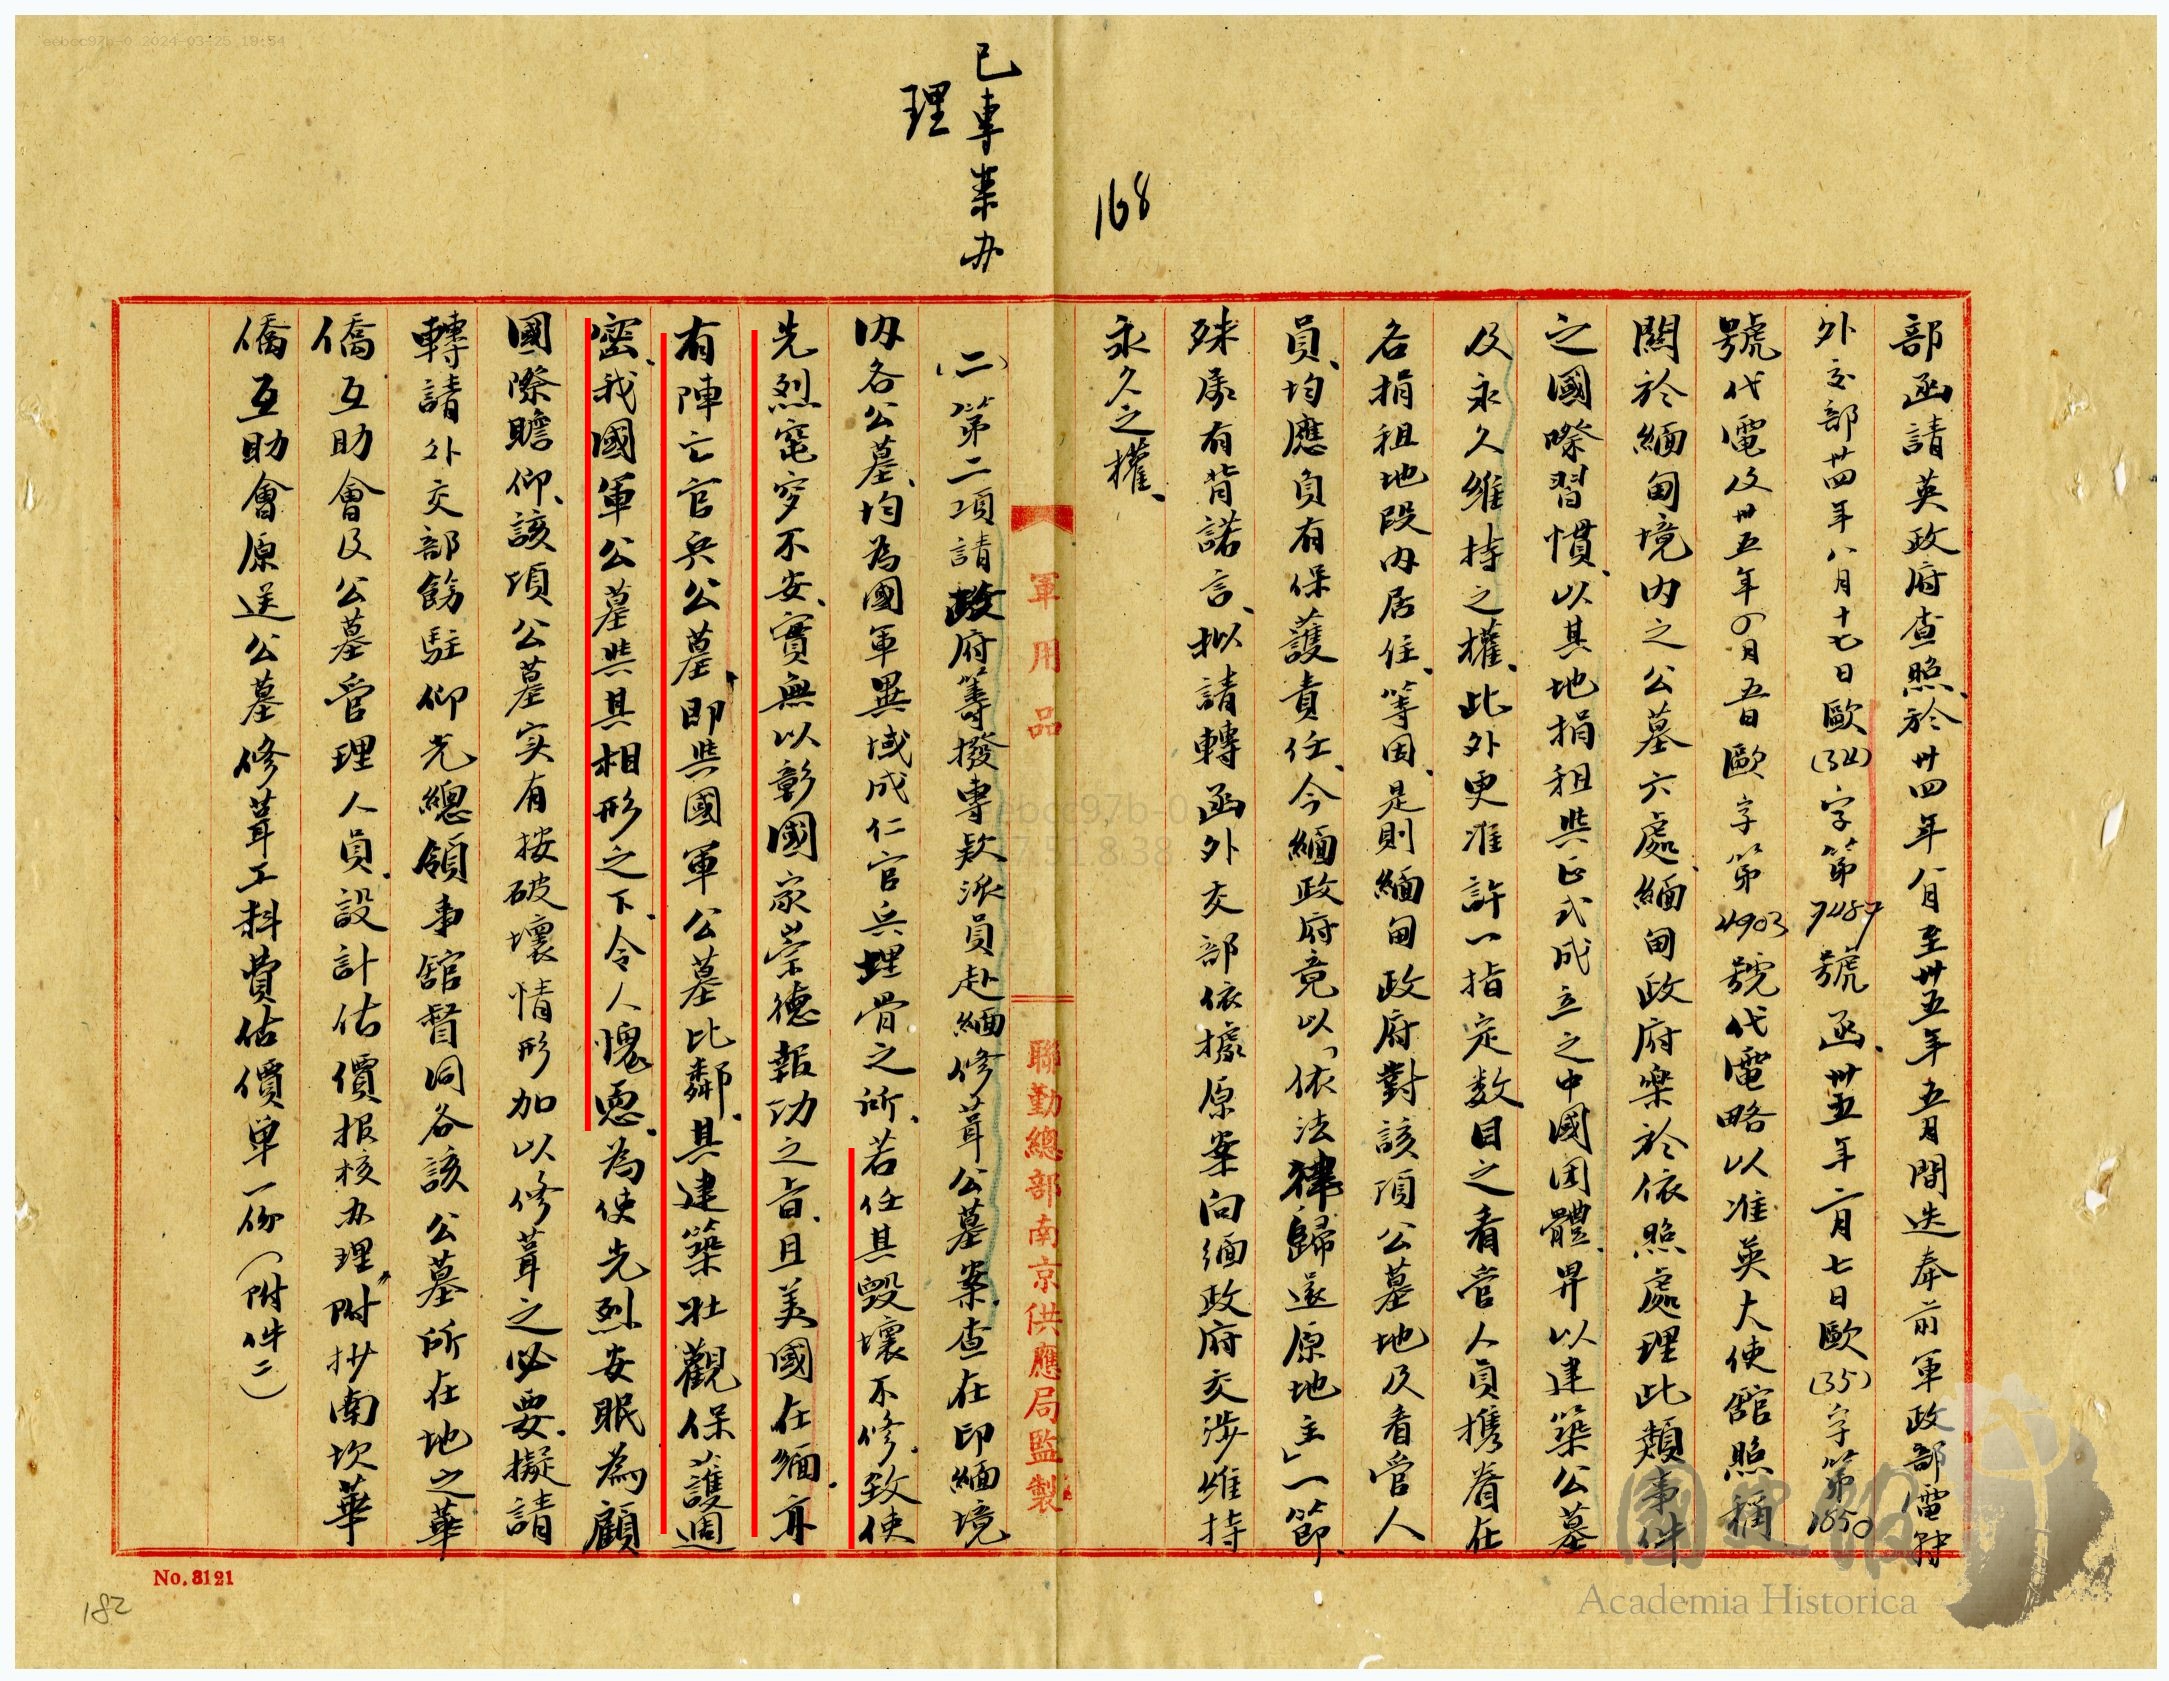 已專案办
理
168
部函請英政府查照、於卅四年八月至卅五年五月間迭奉前軍政部電轉
外交部卅四年八月十七日歐(34)字第7487號函、卅五年二月七日歐(35)字第1850
號代電及卅五年四月五日歐字第4903號代電略以准英大使館照稱
關於緬甸境内之公墓六處、緬甸政府樂於依照處理此類事件
之國際習慣、以其地捐租與正式成立之中國团體、畀以建築公墓
及永久維持之權、此外更准許一指定数目之看管人員携眷在
各捐租地段内居住、等因、是則緬甸政府對該項公墓地及看管人
員、均應負有保護責任、今緬政府竟以「依法律歸還原地主」一節、
殊屬有背諾言、拟請轉函外交部依據原案向緬政府交涉維持
永久之權、
軍用品 聯勤總部南京供應局監製
(二)第二項請政府籌撥專欵派員赴緬修葺公墓案、查在印緬境
内各公墓、均為國軍異域成仁官兵埋骨之所、若任其毀壞不修、致使
先烈窀穸不安、實無以彰國家崇德報功之旨、且美國在緬、亦
有陣亡官兵公墓、即與國軍公墓比鄰、其建築壯觀保護週
密、我國軍公墓與其相形之下、令人愧恧、為使先烈安眠為顧
國際瞻仰、該項公墓实有按破壞情形加以修葺之必要、擬請
轉請外交部飭駐仰光總領事舘督同各該公墓所在地之華
僑互助會及公墓管理人員、設計估價报核办理〞附抄南坎華
僑互助會原送公墓修葺工料費估價单一份(附件二)
No. 3121
182
國史館
Academia Historica